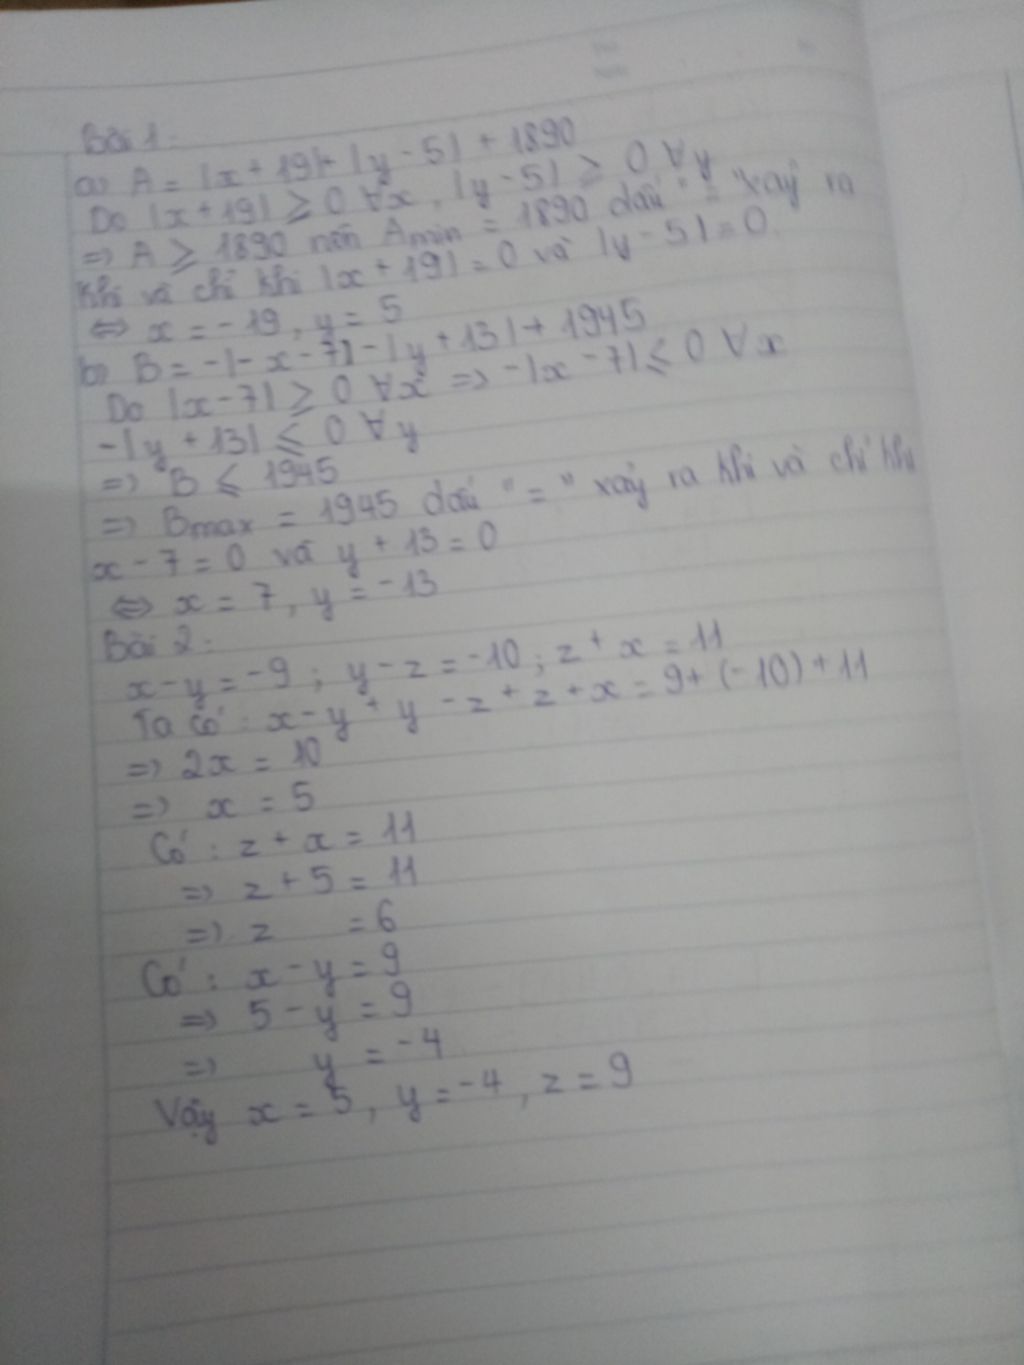 Bài 1:
a) A = |x + 19| + |y - 5| + 1890
Do |x + 19| ≥ 0 ∀x, |y - 5| ≥ 0 ∀y
=> A ≥ 1890 nên Amin = 1890 dấu "=" xảy ra
khi và chỉ khi |x + 19| = 0 và |y - 5| = 0
<=> x = -19, y = 5
b) B = -|-x - 7| - |y + 13| + 1945
Do |x - 7| ≥ 0 ∀x => -|x - 7| ≤ 0 ∀x
-|y + 13| ≤ 0 ∀y
=> B ≤ 1945
=> Bmax = 1945 dấu "=" xảy ra khi và chỉ khi
x - 7 = 0 và y + 13 = 0
<=> x = 7, y = -13
Bài 2:
x - y = -9; y - z = -10; z + x = 11
Ta có: x - y + y - z + z + x = 9 + (-10) + 11
=> 2x = 10
=> x = 5
Có: z + x = 11
=> z + 5 = 11
=> z = 6
Có: x - y = 9
=> 5 - y = 9
=> y = -4
Vậy x = 5, y = -4, z = 9